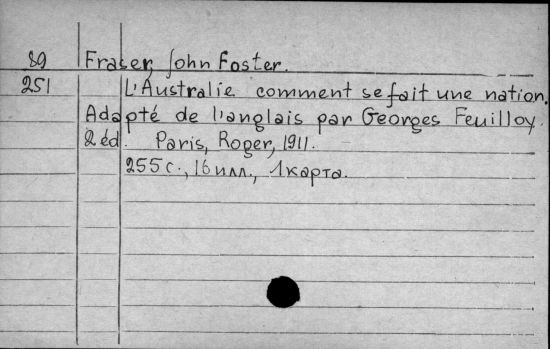 89 Fraser, John Foster.
251 L'Australie comment se fait une nation.
Adapté de l'anglais par Georges Feuilloy.
2 éd. Paris, Roger, 1911.
255с., 16 илл., 1 карта.